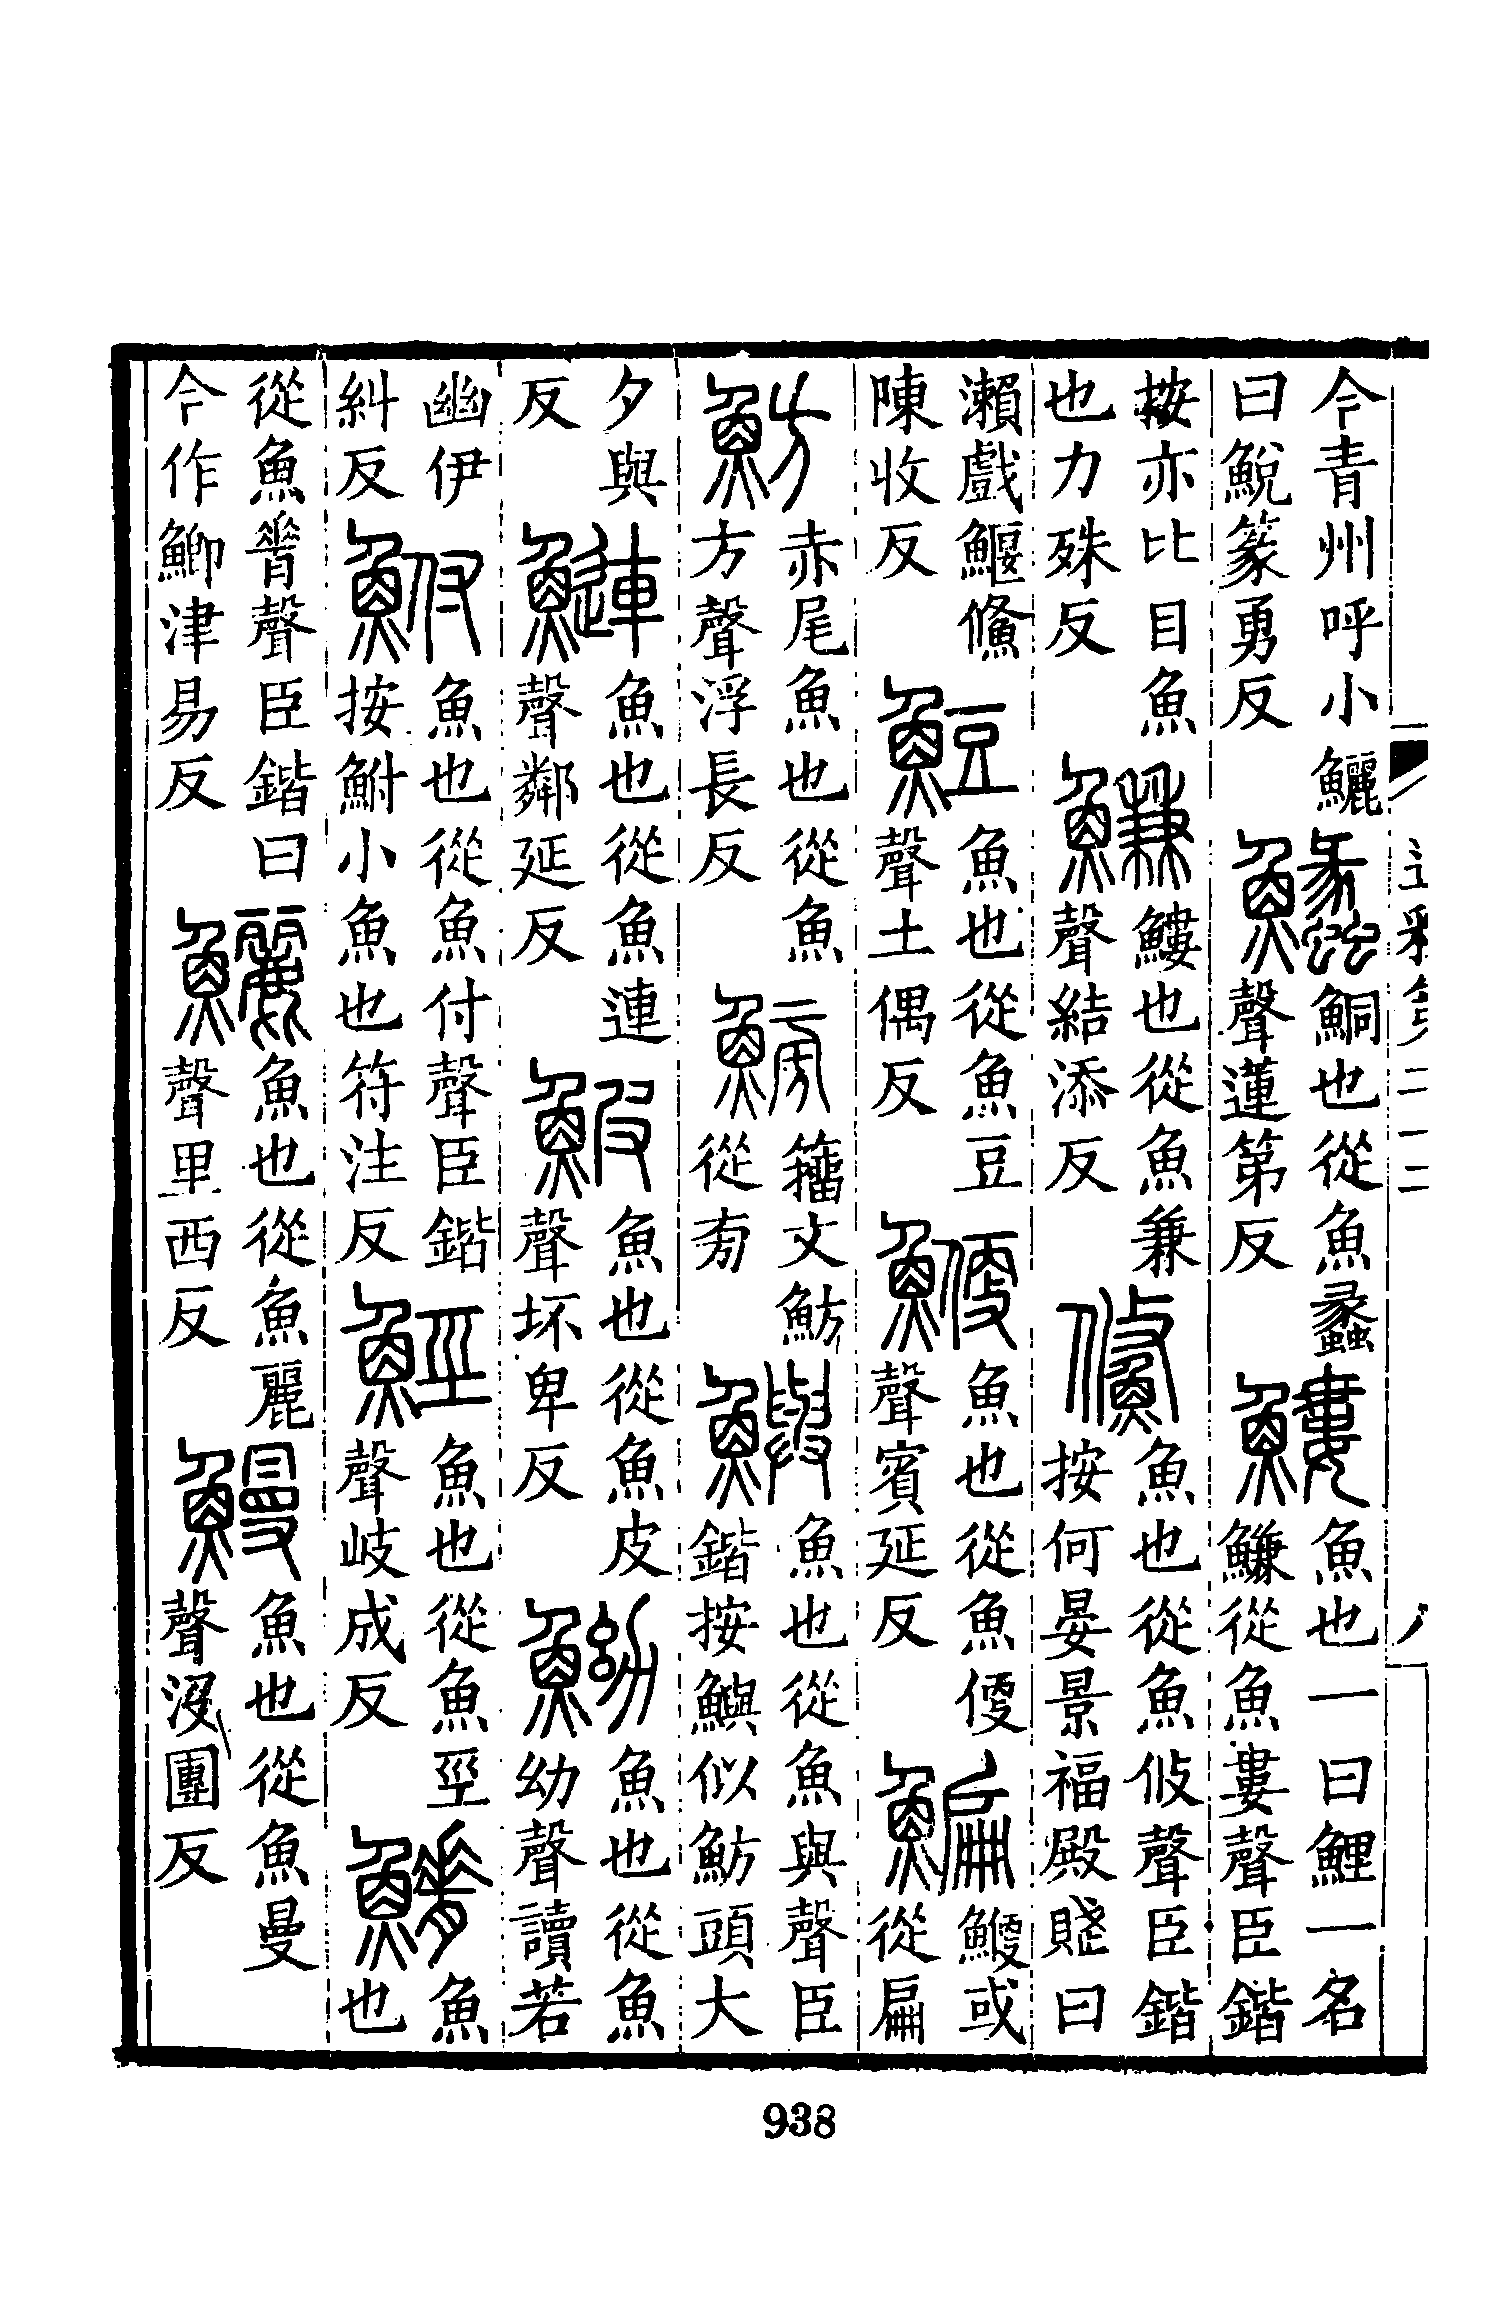 今青州呼小鱺
曰鮵篆勇反
鱺魚也從魚蠡
聲蓮第反
鱺魚也一曰鯉一名
鰜從魚婁聲臣鍇
按亦比目魚
也力殊反
鰜鰱也從魚兼
聲結添反
鯈魚也從魚攸聲臣鍇
按何晏景福殿賦曰
瀨戲鰋鯈
陳收反
䱏魚也從魚豆
聲土偶反
鯾魚也從魚㛹
聲賓延反
鯿鯾或
從扁
魴赤尾魚也從魚
方聲浮長反
籀文魴
從㫄
鱮魚也從魚與聲臣
鍇按鱮似魴頭大
夕與
反
鰱魚也從魚連
聲鄰延反
鮍魚也從魚皮
聲坏卑反
䱂魚也從魚
幼聲讀若
幽伊
糾反
鮒魚也從魚付聲臣鍇
按鮒小魚也符注反
䱓魚也從魚巠
聲岐成反
䲙魚
也
從魚脊聲臣鍇曰
今作鯽津易反
鱺魚也從魚麗
聲里西反
鰻魚也從魚曼
聲沒團反
938